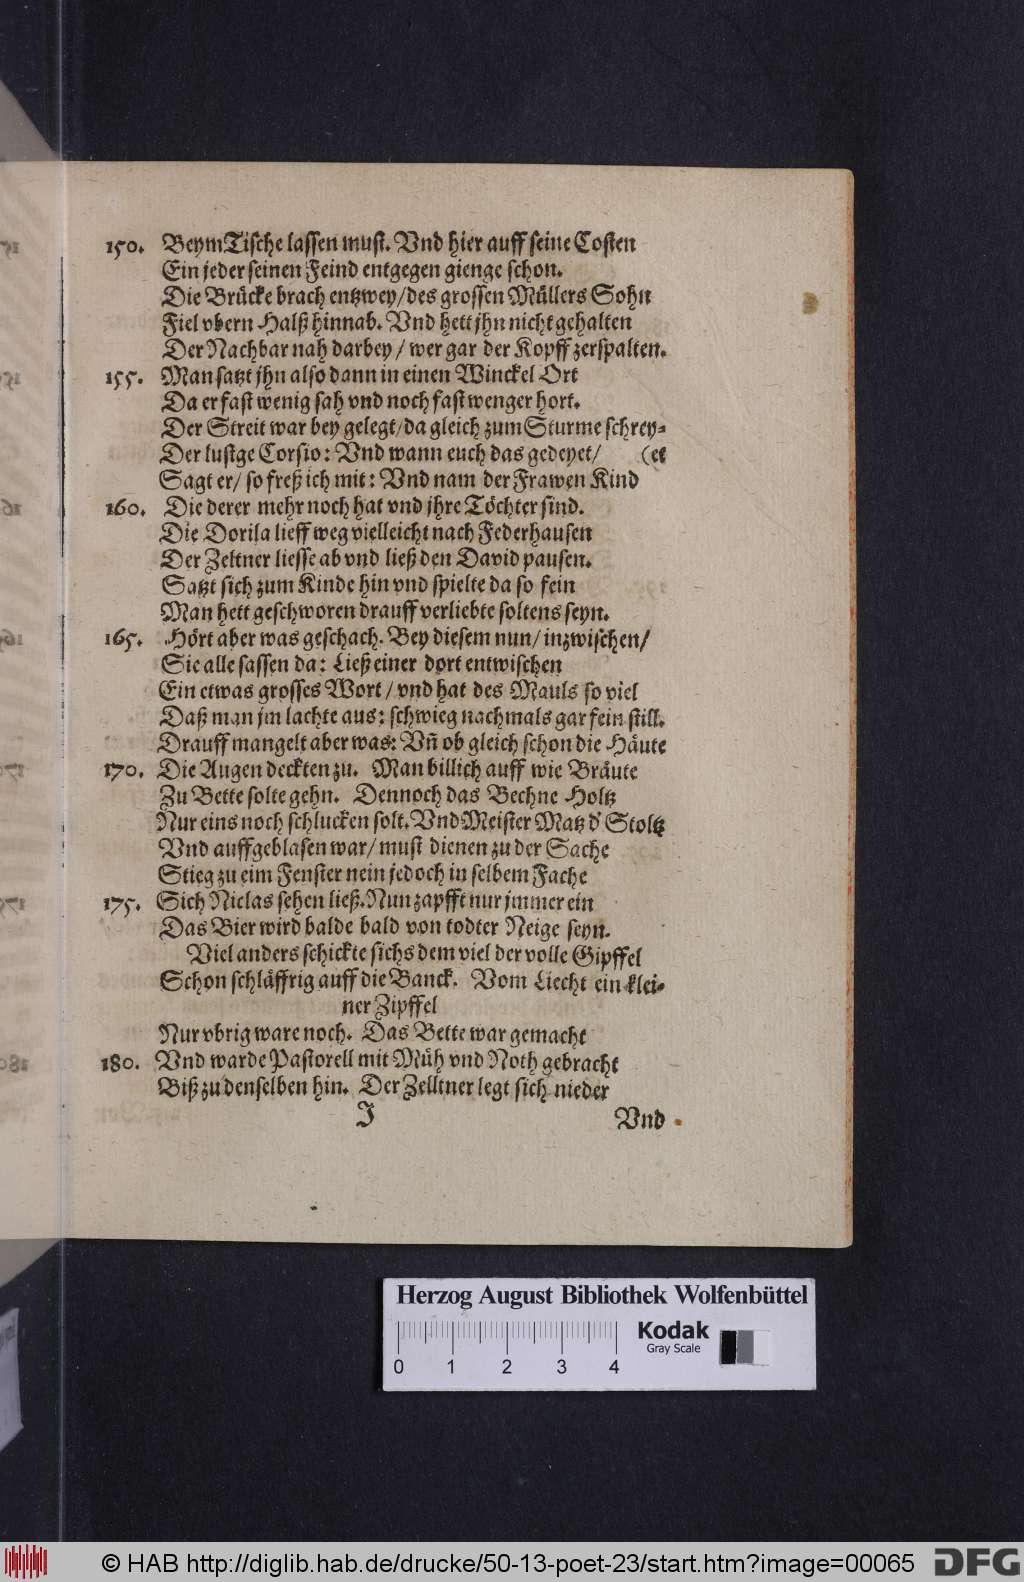 150. Beym Tische lassen must. Vnd hier auff seine Costen
Ein jeder seinen Feind entgegen gienge schon.
Die Brücke brach entzwey/ des grossen Müllers Sohn
Fiel vbern Halß hinnab. Vnd hett jhn nicht gehalten
Der Nachbar nah darbey/ wer gar der Kopff zerspalten.
155. Man satzt jhn also dann in einen Winckel Ort
Da er fast wenig sah vnd noch fast wenger hort.
Der Streit war bey gelegt/ da gleich zum Sturme schrey-
Der lustge Corsio: Vnd wann euch das gedeyet/ (et
Sagt er/ so freß ich mit: Vnd nam der Frawen Kind
160. Die derer mehr noch hat vnd jhre Töchter sind.
Die Dorila lieff weg vielleicht nach Federhausen
Der Zeltner liesse ab vnd ließ den David pausen.
Satzt sich zum Kinde hin vnd spielte da so fein
Man hett geschworen drauff verliebte soltens seyn.
165. Hört aber was geschach. Bey diesem nun/ inzwischen/
Sie alle sassen da: Ließ einer dort entwischen
Ein etwas grosses Wort/ vnd hat des Mauls so viel
Daß man jm lachte aus: schwieg nachmals gar fein still.
Drauff mangelt aber was: Vñ ob gleich schon die Häute
170. Die Augen deckten zu. Man billich auff wie Bräute
Zu Bette solte gehn. Dennoch das Bechne Holtz
Nur eins noch schlucken solt. Vnd Meister Matz d' Stoltz
Vnd auffgeblasen war/ must dienen zu der Sache
Stieg zu eim Fenster nein jedoch in selbem Fache
175. Sich Niclas sehen ließ. Nun zapfft nur jmmer ein
Das Bier wird balde bald von todter Neige seyn.
Viel anders schickte sichs dem viel der volle Gipffel
Schon schläffrig auff die Banck. Vom Liecht ein klei-
ner Zipffel
Nur vbrig ware noch. Das Bette war gemacht
180. Vnd warde Pastorell mit Müh vnd Noth gebracht
Biß zu denselben hin. Der Zelltner legt sich nieder
J Vnd
Herzog August Bibliothek Wolfenbüttel
Kodak
Gray Scale
0 1 2 3 4
© HAB http://diglib.hab.de/drucke/50-13-poet-23/start.htm?image=00065
DFG